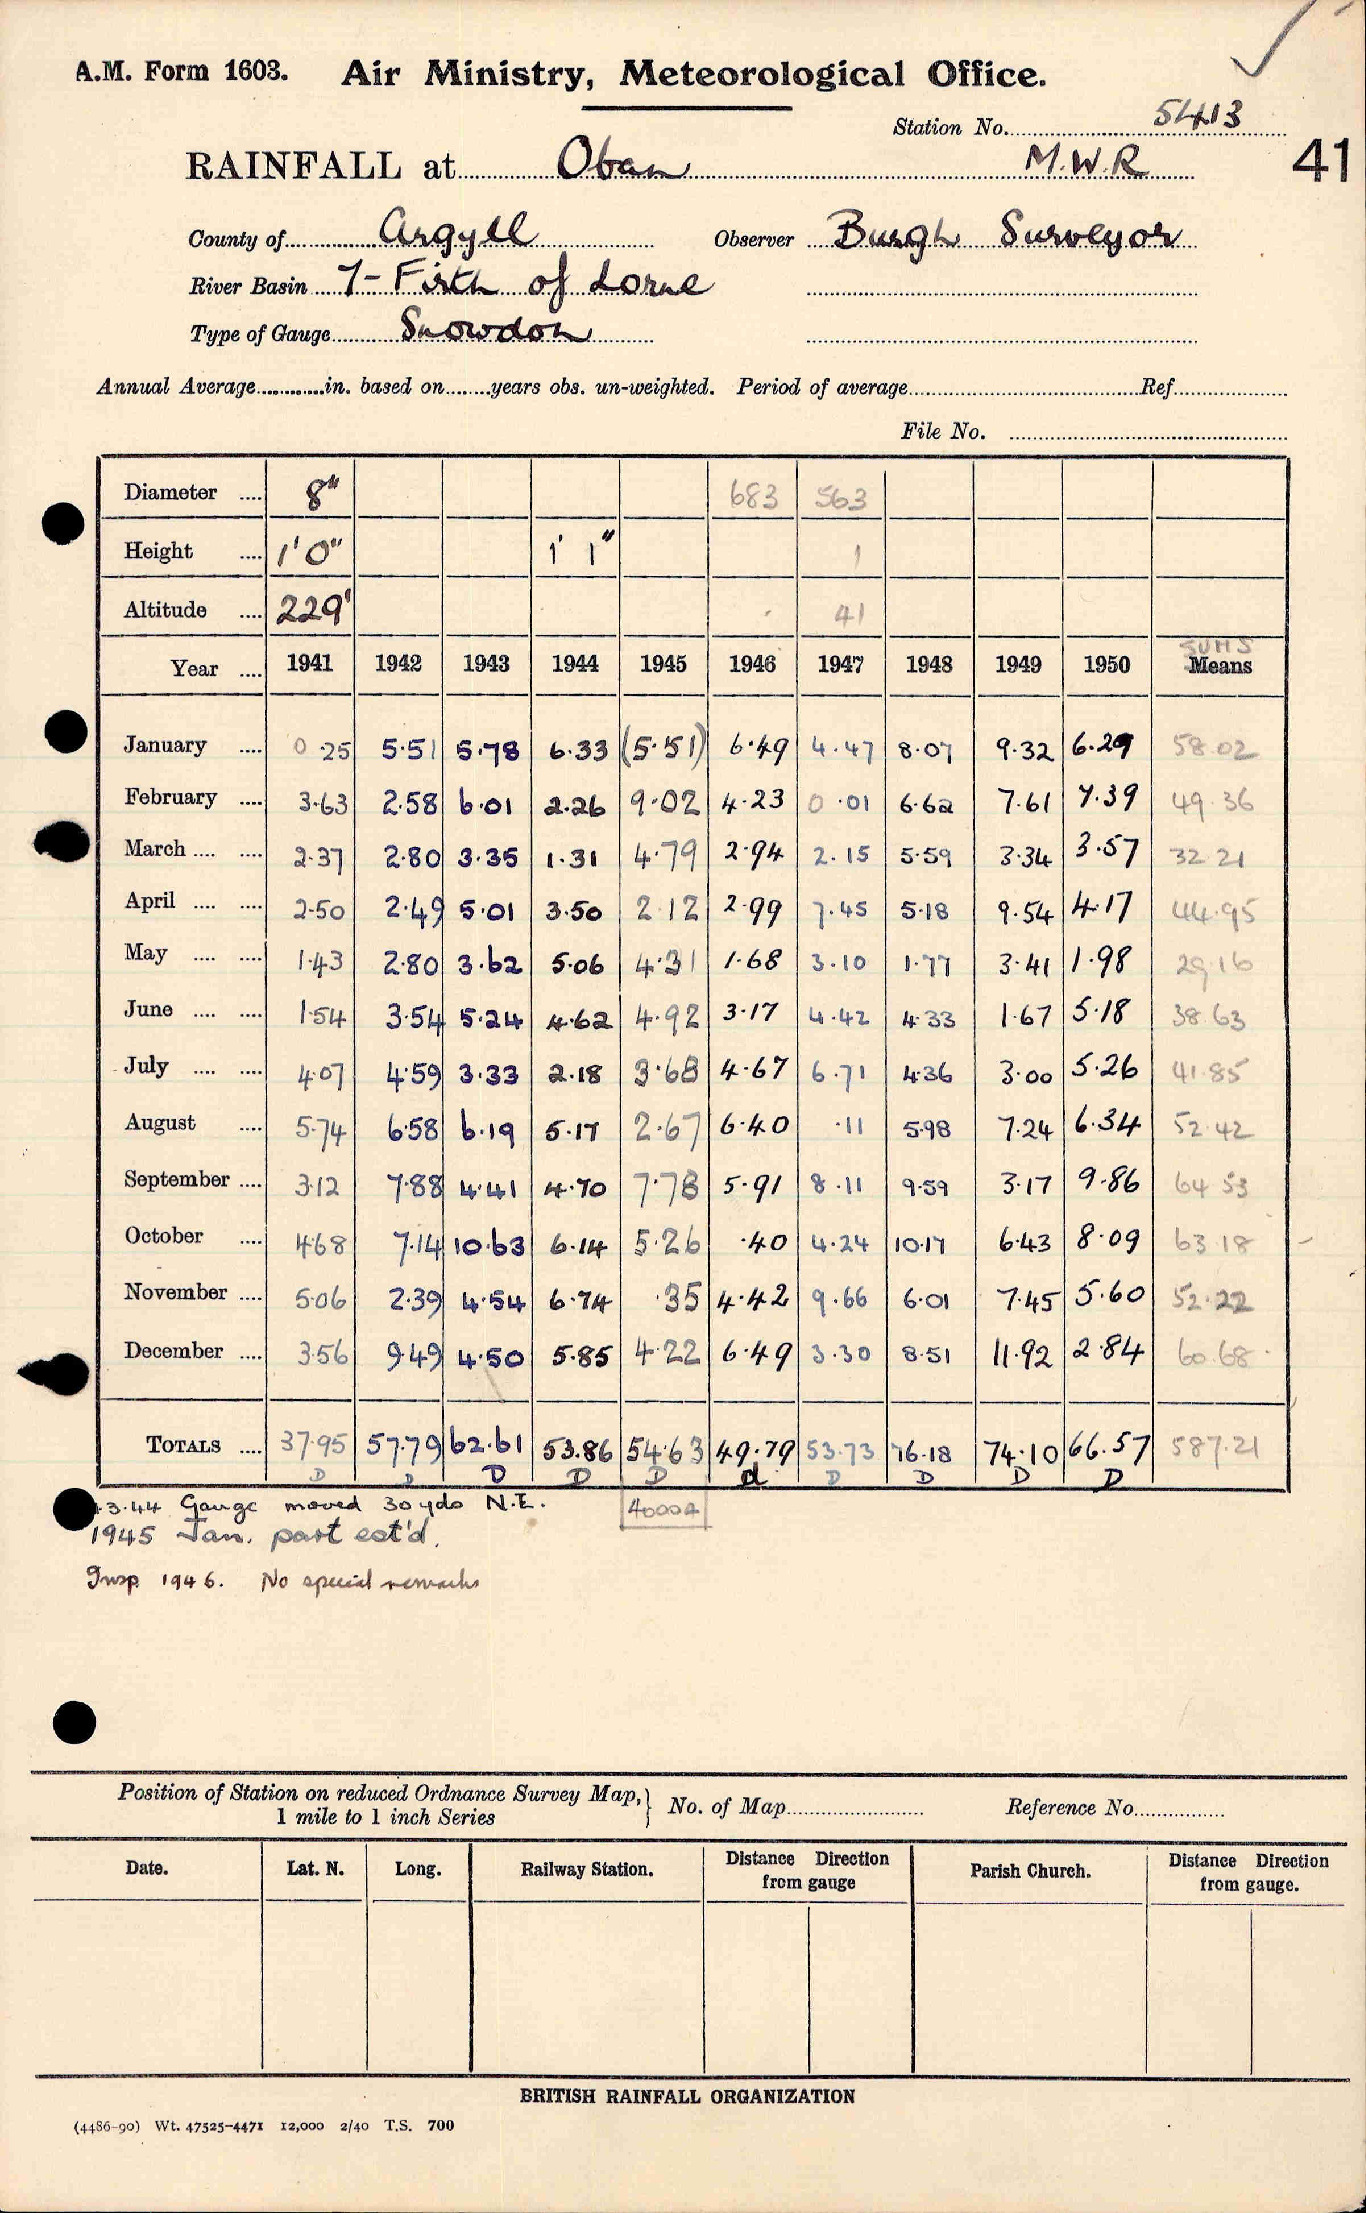 A.M. Form 1603. Air Ministry, Meteorological Office.
Station No. 5413
RAINFALL at Oban M.W.R 41
County of Argyll Observer Burgh Surveyor
River Basin 7- Firth of Lorne
Type of Gauge Snowdon
Annual Average in. based on years obs. un-weighted. Period of average Ref
File No.
Diameter .... 8" 683 563
Height .... 1' 0" 1' 1" 1
Altitude .... 229' 41
SUMS
Year .... 1941 1942 1943 1944 1945 1946 1947 1948 1949 1950 Means
January .... 0.25 5.51 5.78 6.33 (5.51) 6.49 4.47 8.07 9.32 6.29 58.02
February .... 3.63 2.58 6.01 2.26 9.02 4.23 0.01 6.62 7.61 7.39 49.36
March .... .... 2.37 2.80 3.35 1.31 4.79 2.94 2.15 5.59 3.34 3.57 32.21
April .... .... 2.50 2.49 5.01 3.50 2.12 2.99 7.45 5.18 9.54 4.17 44.95
May .... .... 1.43 2.80 3.62 5.06 4.31 1.68 3.10 1.77 3.41 1.98 29.16
June .... .... 1.54 3.54 5.24 4.62 4.92 3.17 4.42 4.33 1.67 5.18 38.63
July .... .... 4.07 4.59 3.33 2.18 3.68 4.67 6.71 4.36 3.00 5.26 41.85
August .... 5.74 6.58 6.19 5.17 2.67 6.40 .11 5.98 7.24 6.34 52.42
September .... 3.12 7.88 4.41 4.70 7.78 5.91 8.11 9.59 3.17 9.86 64.53
October .... 4.68 7.14 10.63 6.14 5.26 .40 4.24 10.17 6.43 8.09 63.18
November .... 5.06 2.39 4.54 6.74 .35 4.42 9.66 6.01 7.45 5.60 52.22
December .... 3.56 9.49 4.50 5.85 4.22 6.49 3.30 8.51 11.92 2.84 60.68
TOTALS .... 37.95 57.79 62.61 53.86 54.63 49.79 53.73 76.18 74.10 66.57 587.21
D D D D D d D D D D
3.44 Gauge moved 30 yds N.E.
1945 Jan. part est'd.
Insp 1946. No special remarks
Position of Station on reduced Ordnance Survey Map,} No. of Map Reference No.
1 mile to 1 inch Series
Date. Lat. N. Long. Railway Station. Distance Direction from gauge Parish Church. Distance Direction from gauge.
BRITISH RAINFALL ORGANIZATION
(4486-90) Wt. 47525-4471 12,000 2/40 T.S. 700